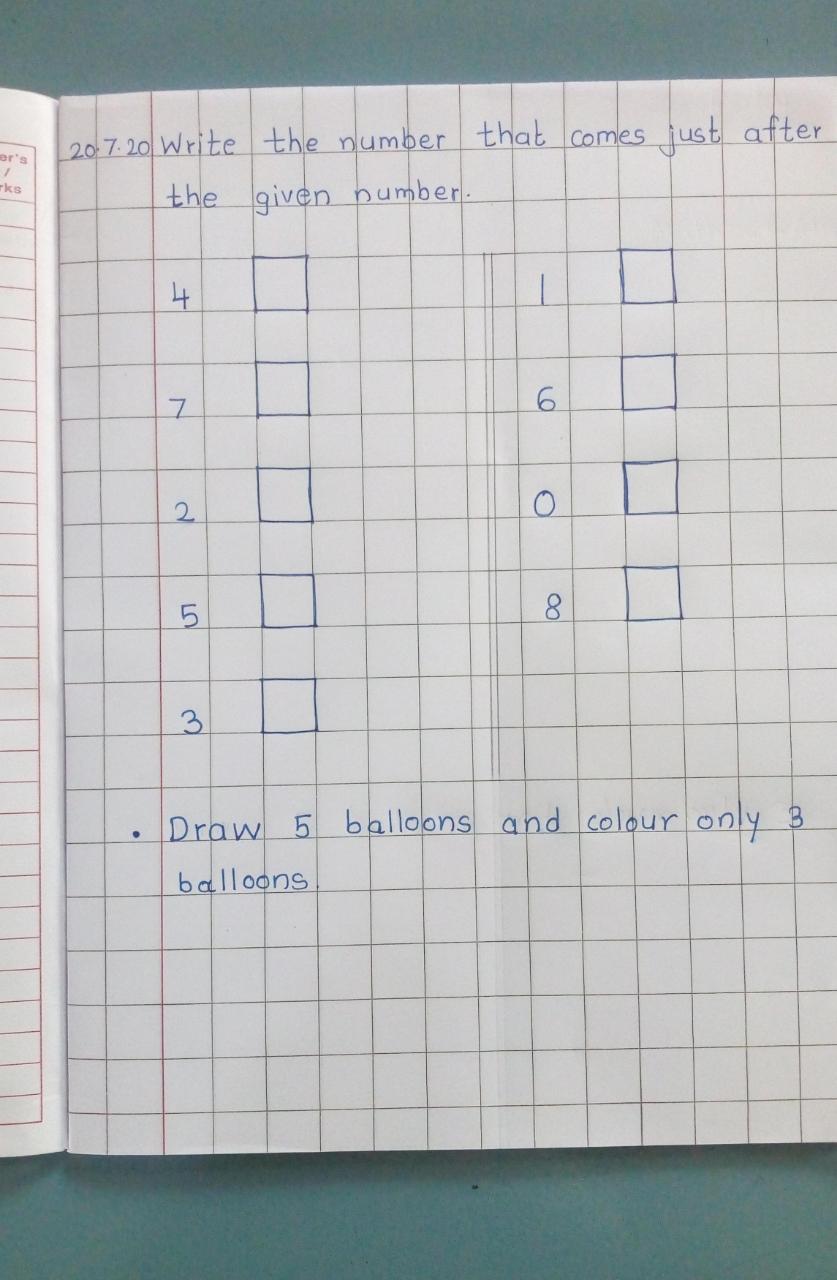 20.7.20 Write the number that comes just after
the given number.
4 1
7 6
2 0
5 8
3
• Draw 5 balloons and colour only 3
balloons